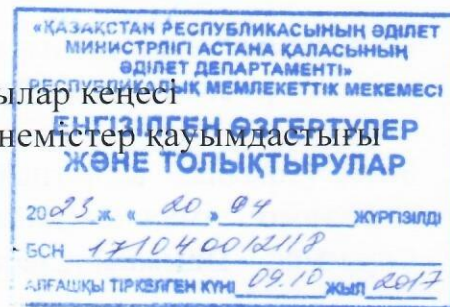 «ҚАЗАҚСТАН РЕСПУБЛИКАСЫНЫҢ ӘДІЛЕТ
МИНИСТРЛІГІ АСТАНА ҚАЛАСЫНЫҢ
ӘДІЛЕТ ДЕПАРТАМЕНТІ»
РЕСПУБЛИКАЛЫҚ МЕМЛЕКЕТТІК МЕКЕМЕСІ
ылар кеңесі
ЕНГІЗІЛГЕН ӨЗГЕРТУЛЕР
немістер қауымдастығы
ЖӘНЕ ТОЛЫҚТЫРУЛАР
2023 ж. «20» 04 ЖҮРГІЗІЛДІ
БСН 171040012118
АЛҒАШҚЫ ТІРКЕЛГЕН КҮНІ 09.10 ЖЫЛ 2017